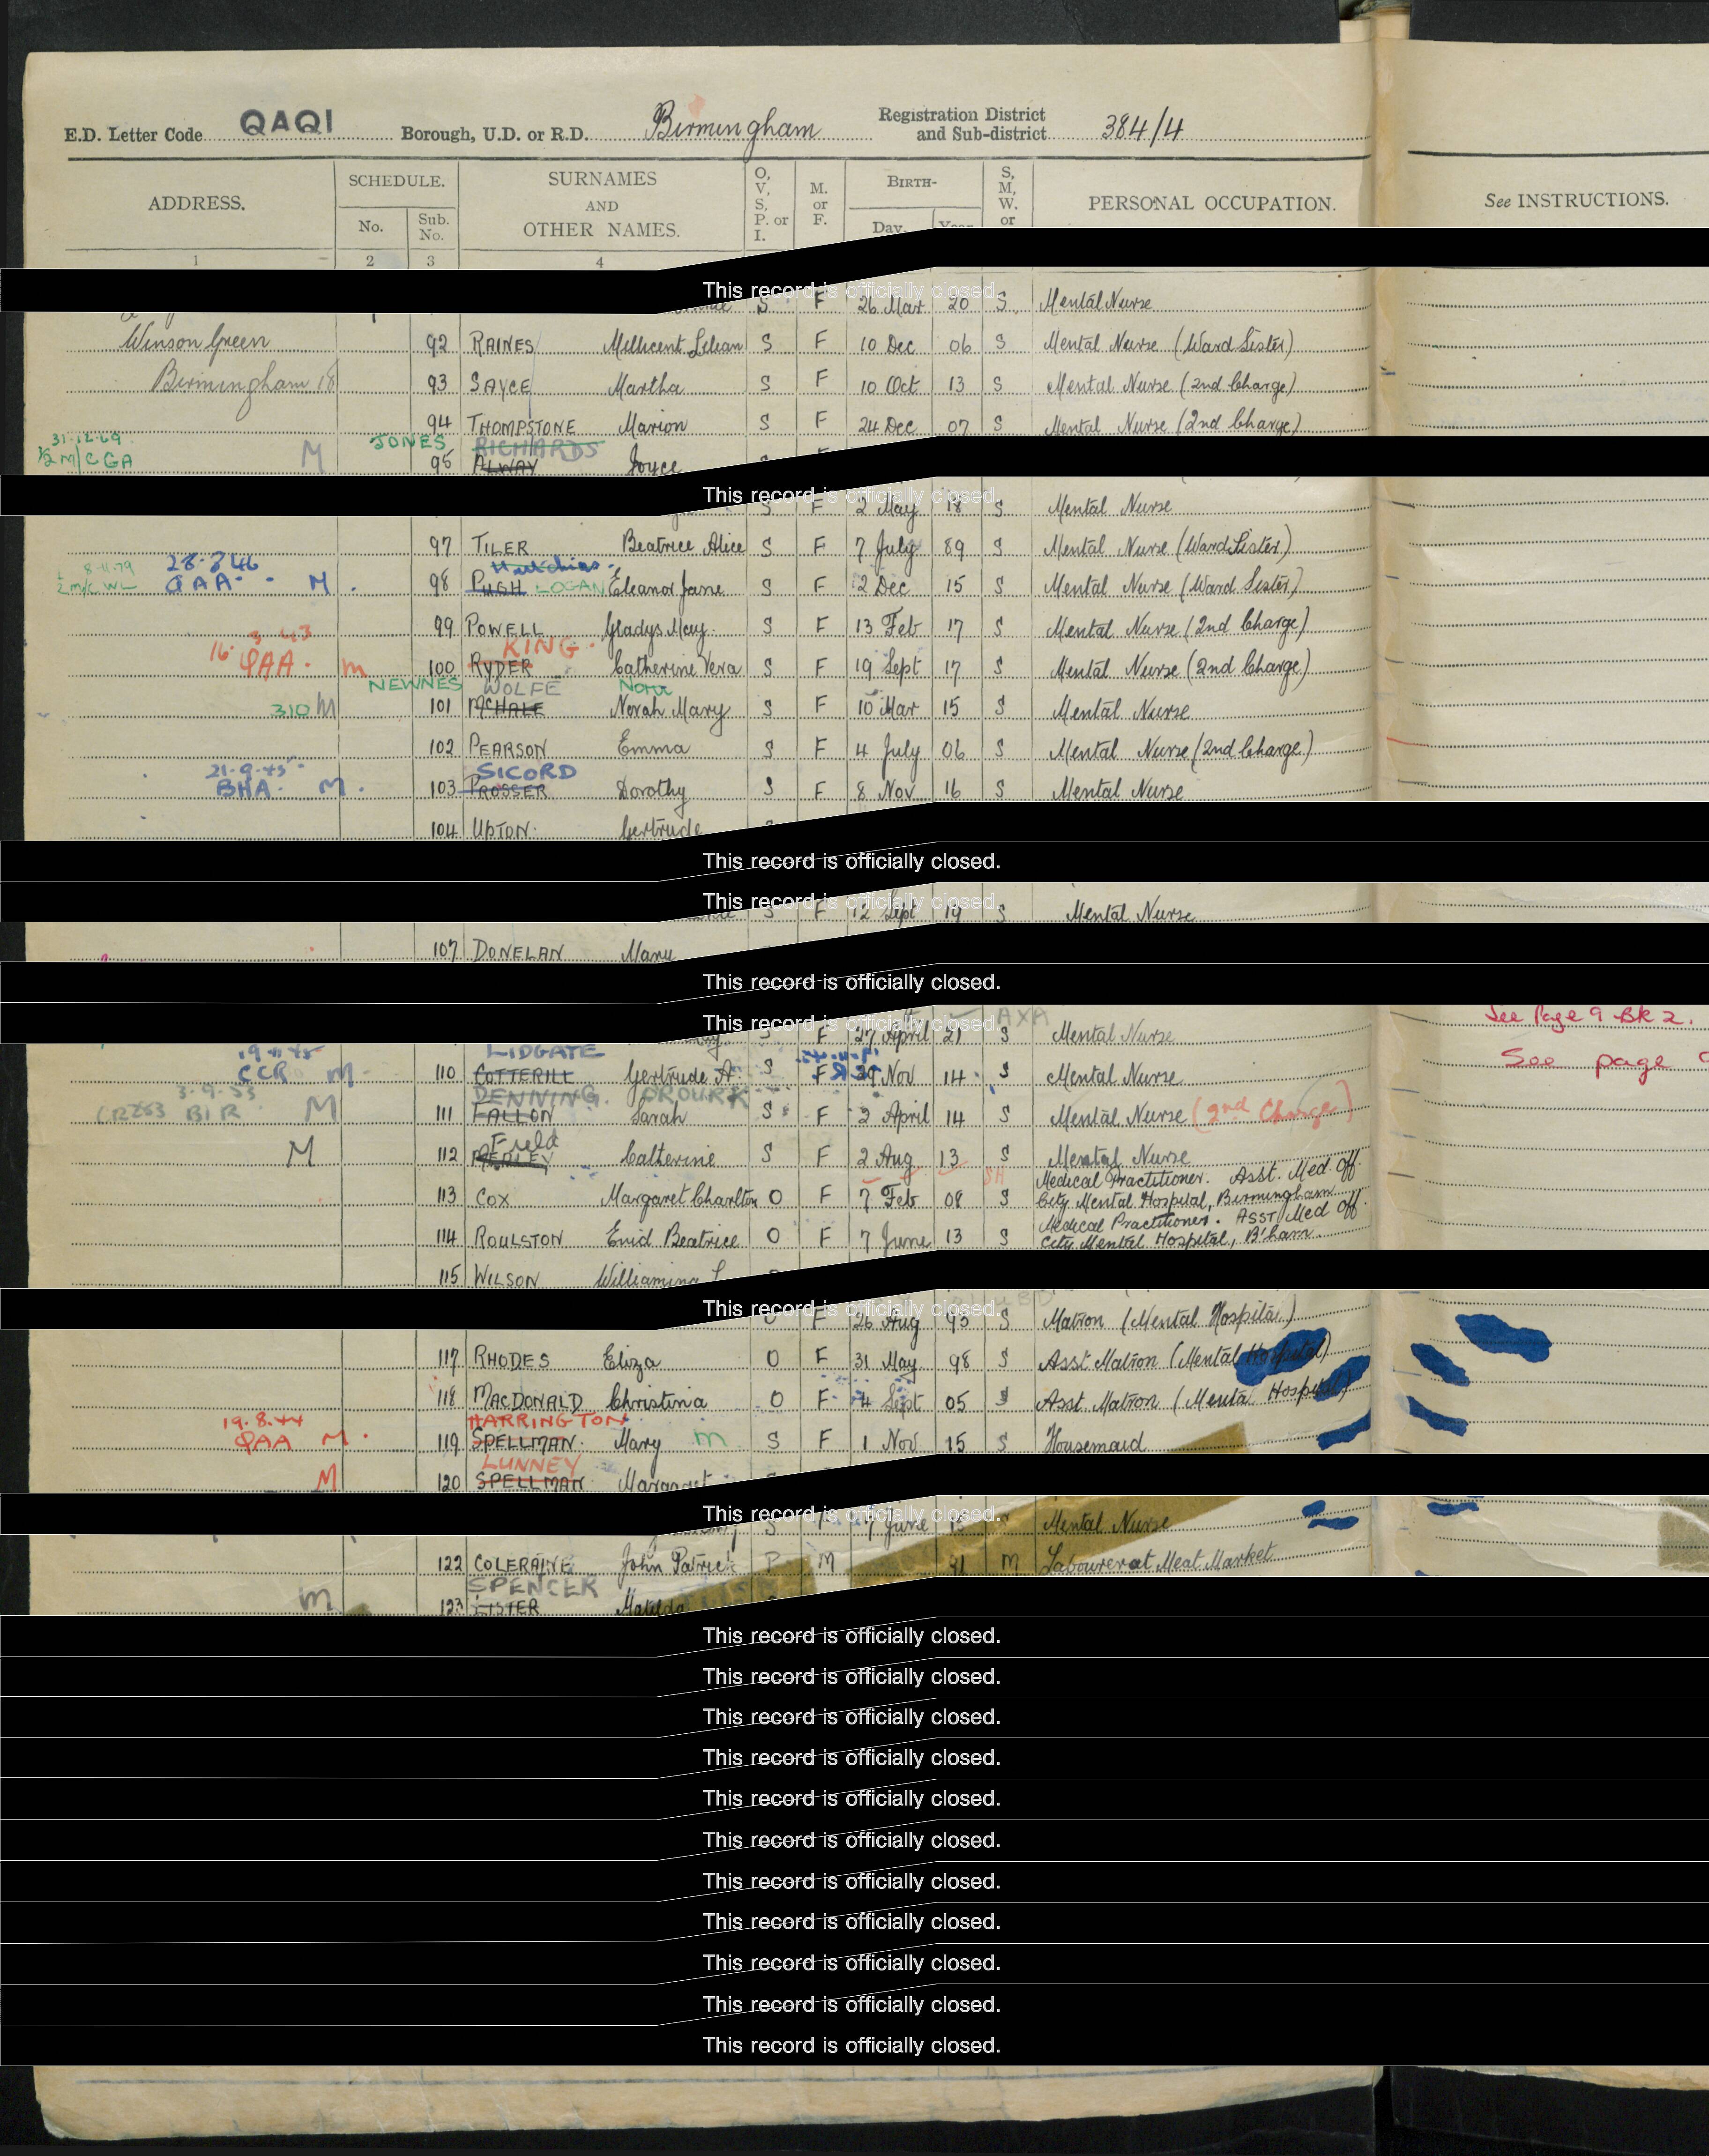 E.D. Letter Code QAQI Borough, U.D. or R.D. Birmingham Registration District and Sub-district 384/4
ADDRESS. SCHEDULE. No. Sub. No. SURNAMES AND OTHER NAMES. O, V, S, P. or I. M. or F. BIRTH- Day. Year S, M, W. or PERSONAL OCCUPATION. See INSTRUCTIONS.
1 2 3 4
This record is officially closed.
S F 26 Mar 20 S Mental Nurse
Winson Green 92 RAINES Millicent Lilian S F 10 Dec 06 S Mental Nurse (Ward Sister)
Birmingham 18 93 SAYCE Martha S F 10 Oct 13 S Mental Nurse (2nd Charge)
94 THOMPSTONE Marion S F 24 Dec 07 S Mental Nurse (2nd Charge)
31-12-69 JONES RICHARDS
½ M/C CGA M 95 ALWAY Joyce
This record is officially closed.
S F 2 May 18 S Mental Nurse
97 TILER Beatrice Alice S F 7 July 89 S Mental Nurse (Ward Sister)
8-11-79 28-3-46 Hutchins
½ M/C WL QAA M 98 PUGH LOGAN Eleanor Jane S F 2 Dec 15 S Mental Nurse (Ward Sister)
99 POWELL Gladys May S F 13 Feb 17 S Mental Nurse (2nd Charge)
16. 3 43 KING
QAA. m 100 RYDER Catherine Vera S F 19 Sept 17 S Mental Nurse (2nd Charge)
NEWNES WOLFE Nora
310 M 101 MCHALE Norah Mary S F 10 Mar 15 S Mental Nurse
102 PEARSON Emma S F 4 July 06 S Mental Nurse (2nd Charge)
21-9-45 SICORD
BHA. M. 103 PROSSER Dorothy S F 8 Nov 16 S Mental Nurse
104 UPTON Gertrude
This record is officially closed.
This record is officially closed.
S F 12 Sept 19 S Mental Nurse
107 DONELAN Mary
This record is officially closed.
This record is officially closed.
AXA See Page 9 BK 2.
S F 27 April 21 S Mental Nurse
See page
LIDGATE
CCR M 110 COTTERILL Gertrude A. S F 29 Nov 14 S Mental Nurse
3-9-53 DENNING. OROURK
CR283 BIR M 111 FALLON Sarah S F 2 April 14 S Mental Nurse (2nd Charge)
Field
M 112 MEDLEY Catherine S F 2 Aug 13 S Mental Nurse
SH Medical Practitioner. Asst. Med Off.
113 COX Margaret Charlton O F 7 Feb 08 S City Mental Hospital, Birmingham
Medical Practitioner. ASST Med Off.
114 ROULSTON Enid Beatrice O F 7 June 13 S City Mental Hospital, B'ham.
115 WILSON Williamina
This record is officially closed.
F 26 Aug S Matron (Mental Hospital)
117 RHODES Eliza O F 31 May 98 S Asst Matron (Mental Hospital)
118 MACDONALD Christina O F 4 Sept 05 S Asst. Matron (Mental Hospital)
19.8.44 HARRINGTON
QAA M. 119 SPELLMAN Mary m S F 1 Nov 15 S Housemaid
LUNNEY
M 120 SPELLMAN Margaret
This record is officially closed.
June Mental Nurse
122 COLERAINE John Patrick P M 91 M Labourer at Meat Market
SPENCER
m 123 LISTER Matilda
This record is officially closed.
This record is officially closed.
This record is officially closed.
This record is officially closed.
This record is officially closed.
This record is officially closed.
This record is officially closed.
This record is officially closed.
This record is officially closed.
This record is officially closed.
This record is officially closed.